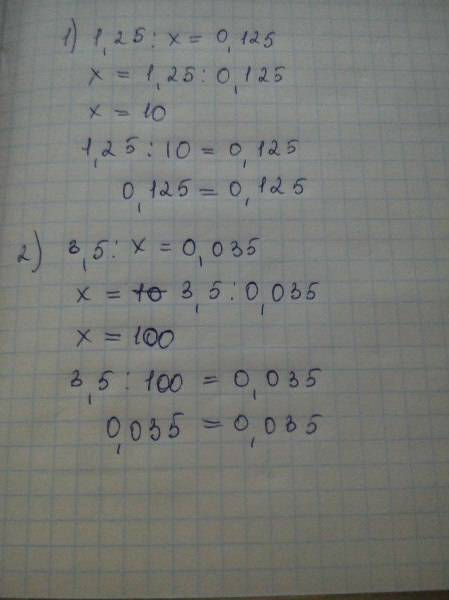 1) 1,25 : x = 0,125
x = 1,25 : 0,125
x = 10
1,25 : 10 = 0,125
0,125 = 0,125
2) 3,5 : x = 0,035
x = 10 3,5 : 0,035
x = 100
3,5 : 100 = 0,035
0,035 = 0,035